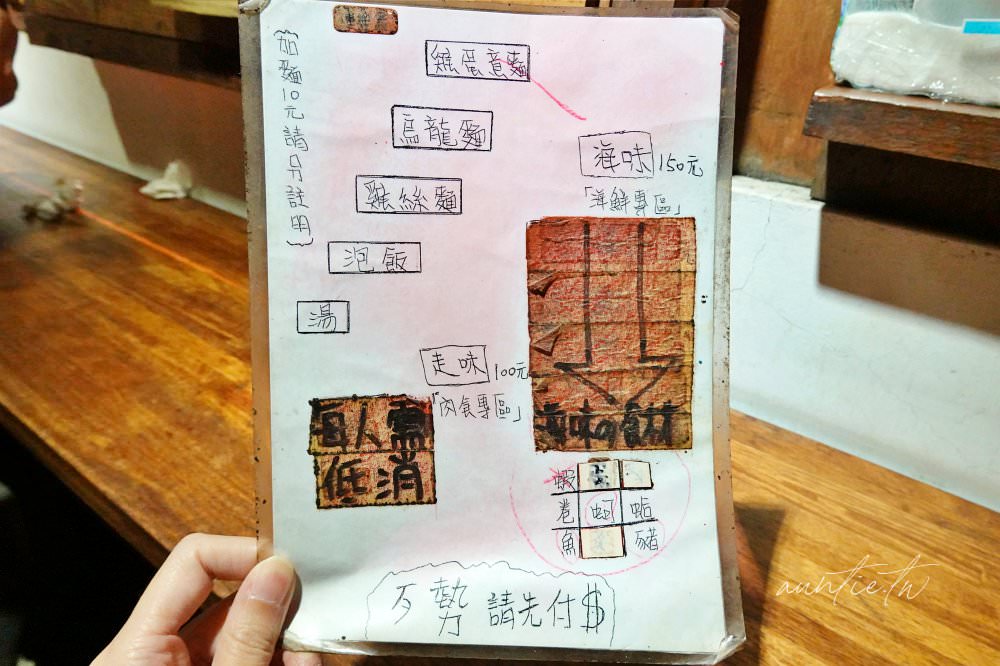 加麵10元請分註明
雞蛋意麵
烏龍麵
雞絲麵
泡飯
湯
海味 150元
「洋鮮專區」
走味 100元
「肉食專區」
每人需
低消
海味の食材
蝦
卷 蚵 蛤
魚 豬
歹勢 請先付$
auntie.tw